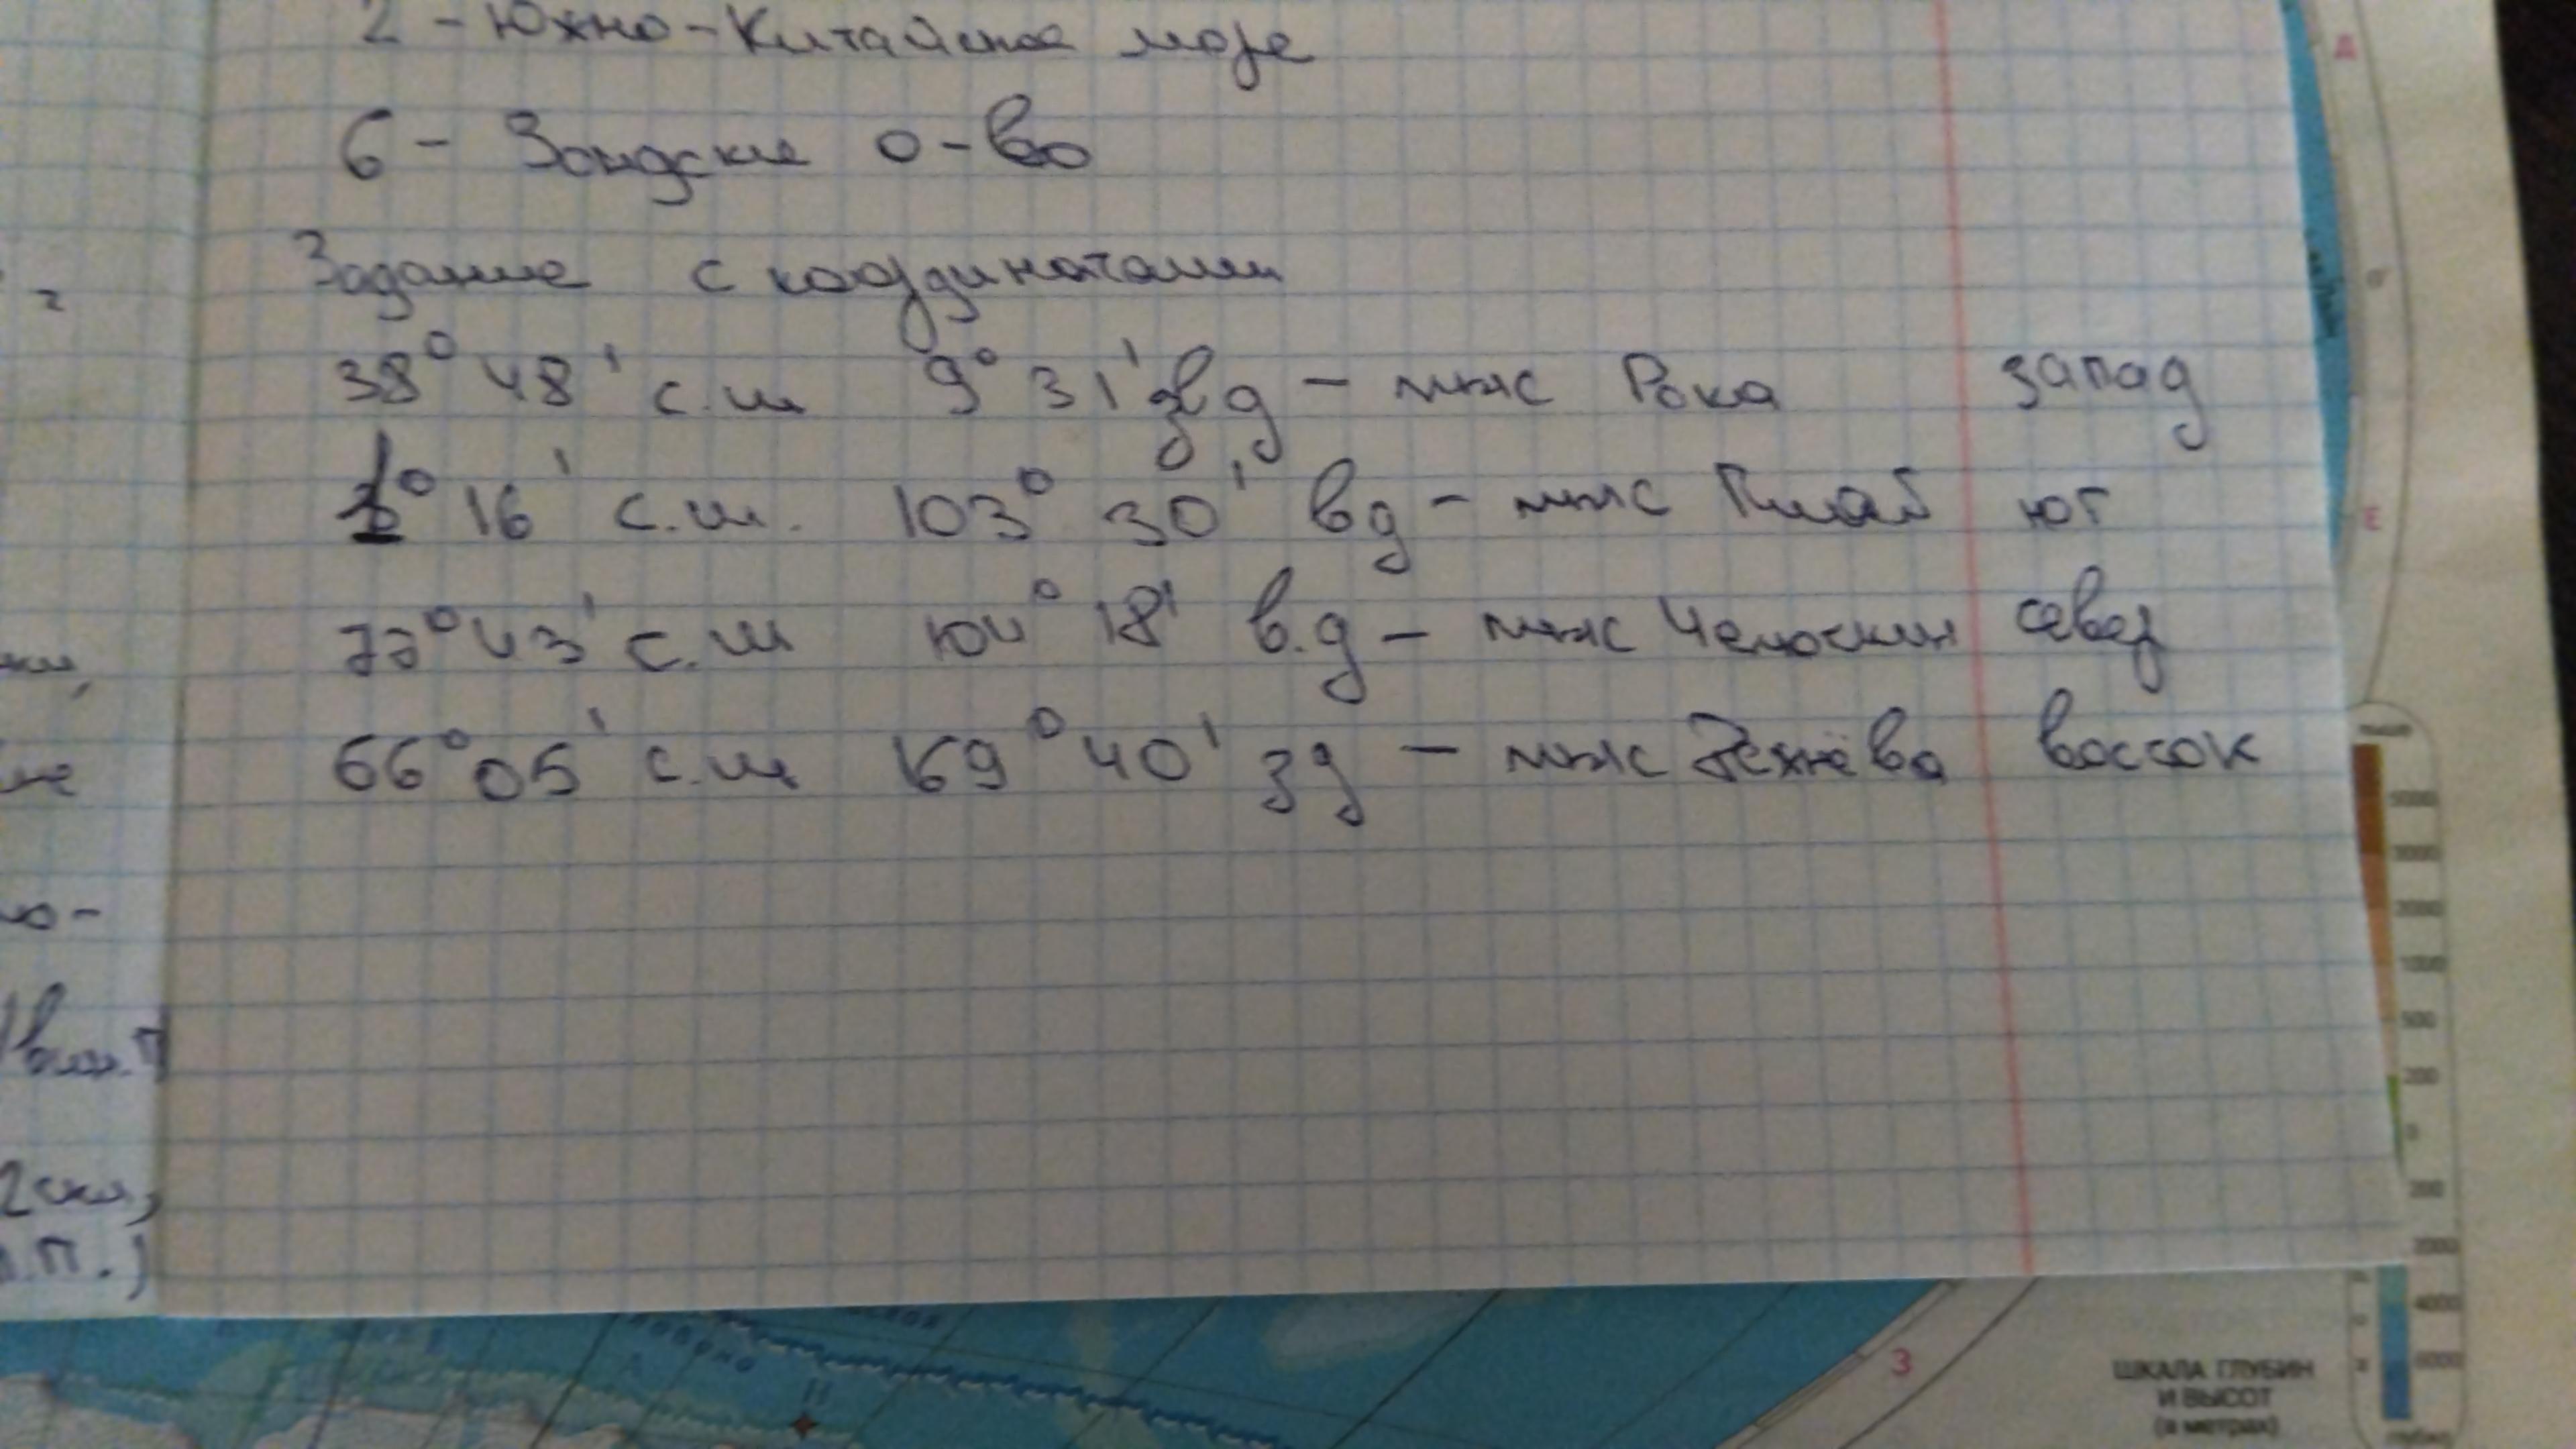 2 - Южно-Китайское море
6 - Зондские о-во
Задание с координатами
38° 48' с.ш 9° 31' зд - мыс Рока запад
1° 16' с.ш. 103° 30' вд - мыс Пиай юг
77° 43' с.ш 104° 18' в.д - мыс Челюскин север
66° 05' с.ш 169° 40' зд - мыс Дежнёва воссок
Д
Е
З
ШКАЛА ГЛУБИН
И ВЫСОТ
(в метрах)
5000
3000
2000
1000
500
200
0
200
2000
4000
6000